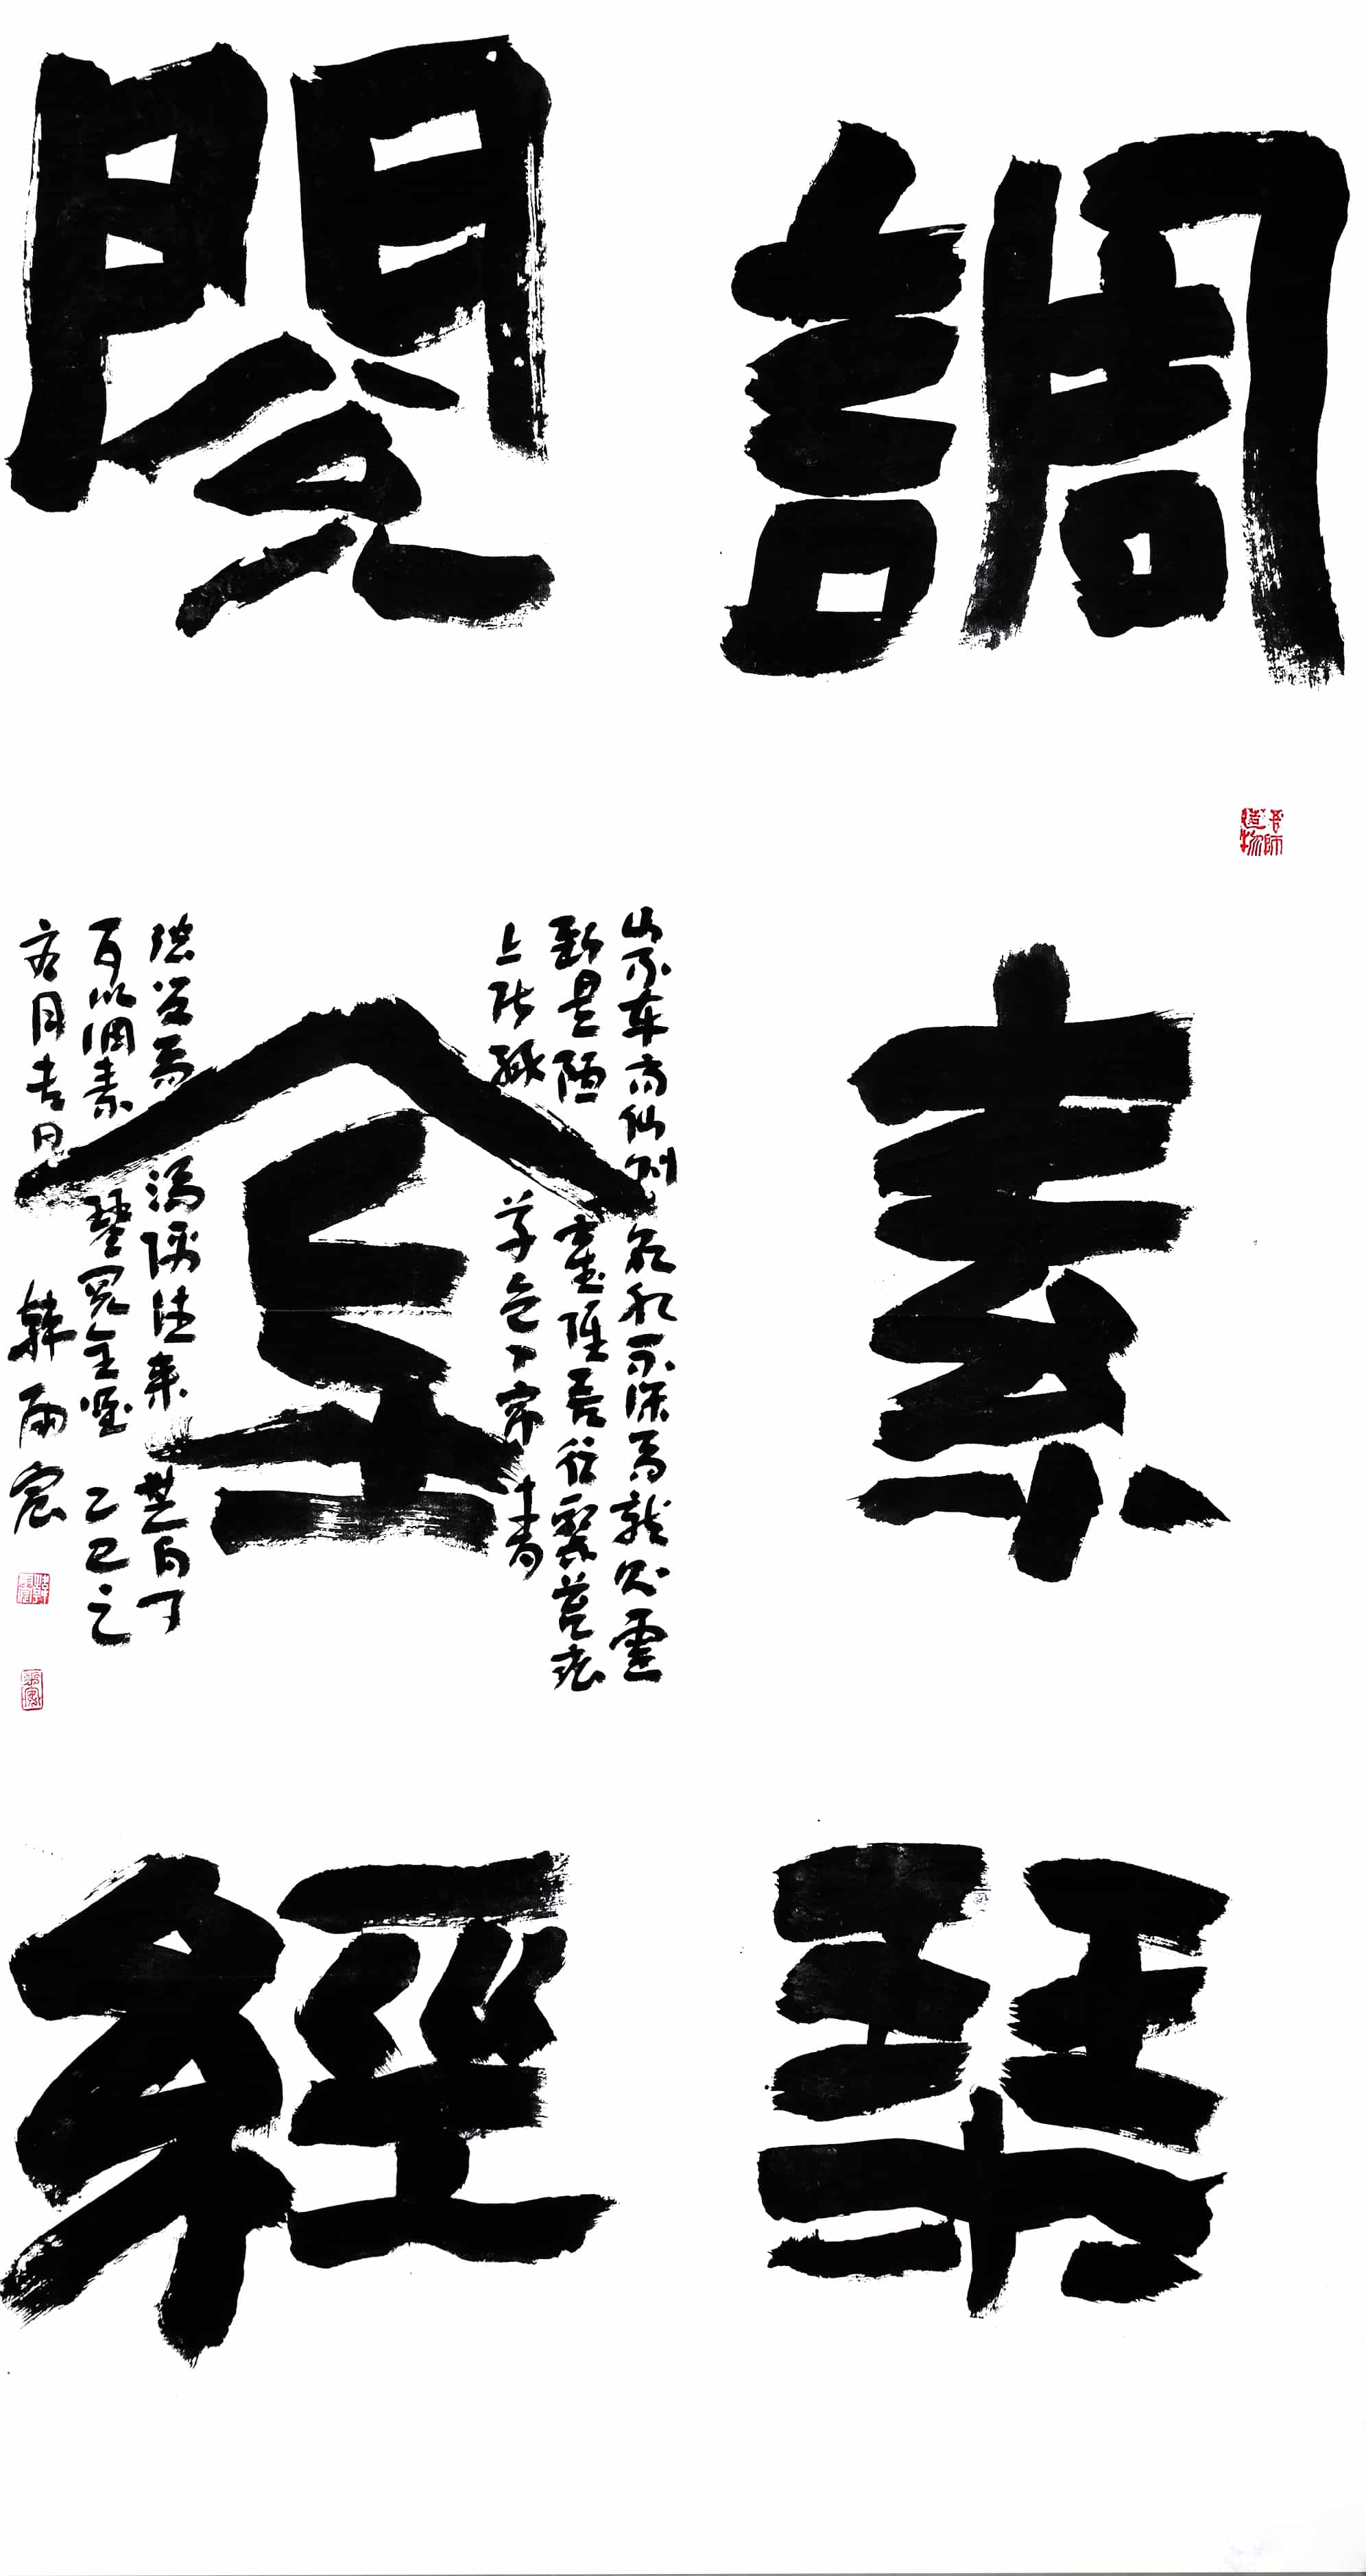 調素琴
閱金經
山不在高仙則名水不深有龍則靈
斯是陋室惟吾德馨苔痕
上階綠草色入簾青
談笑有鴻儒往來無白丁
可以調素琴閱金經乙巳之
月吉日韓雨宸